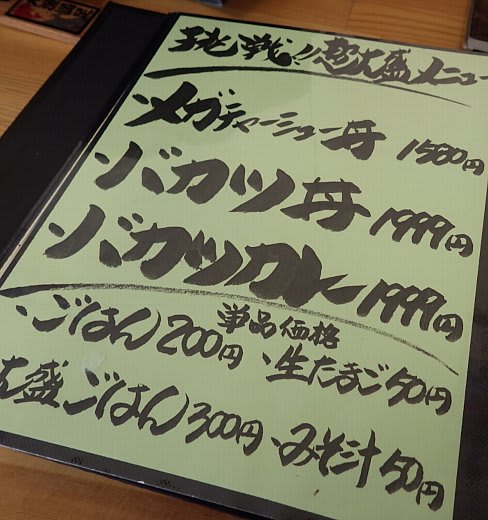 挑戦!!超大盛メニュー
メガチャーシュー丼 1500円
バカツ丼 1999円
バカツカレー 1999円
単品価格
、ごはん 200円 、生たまご 50円
大盛ごはん 300円 、みそ汁 50円